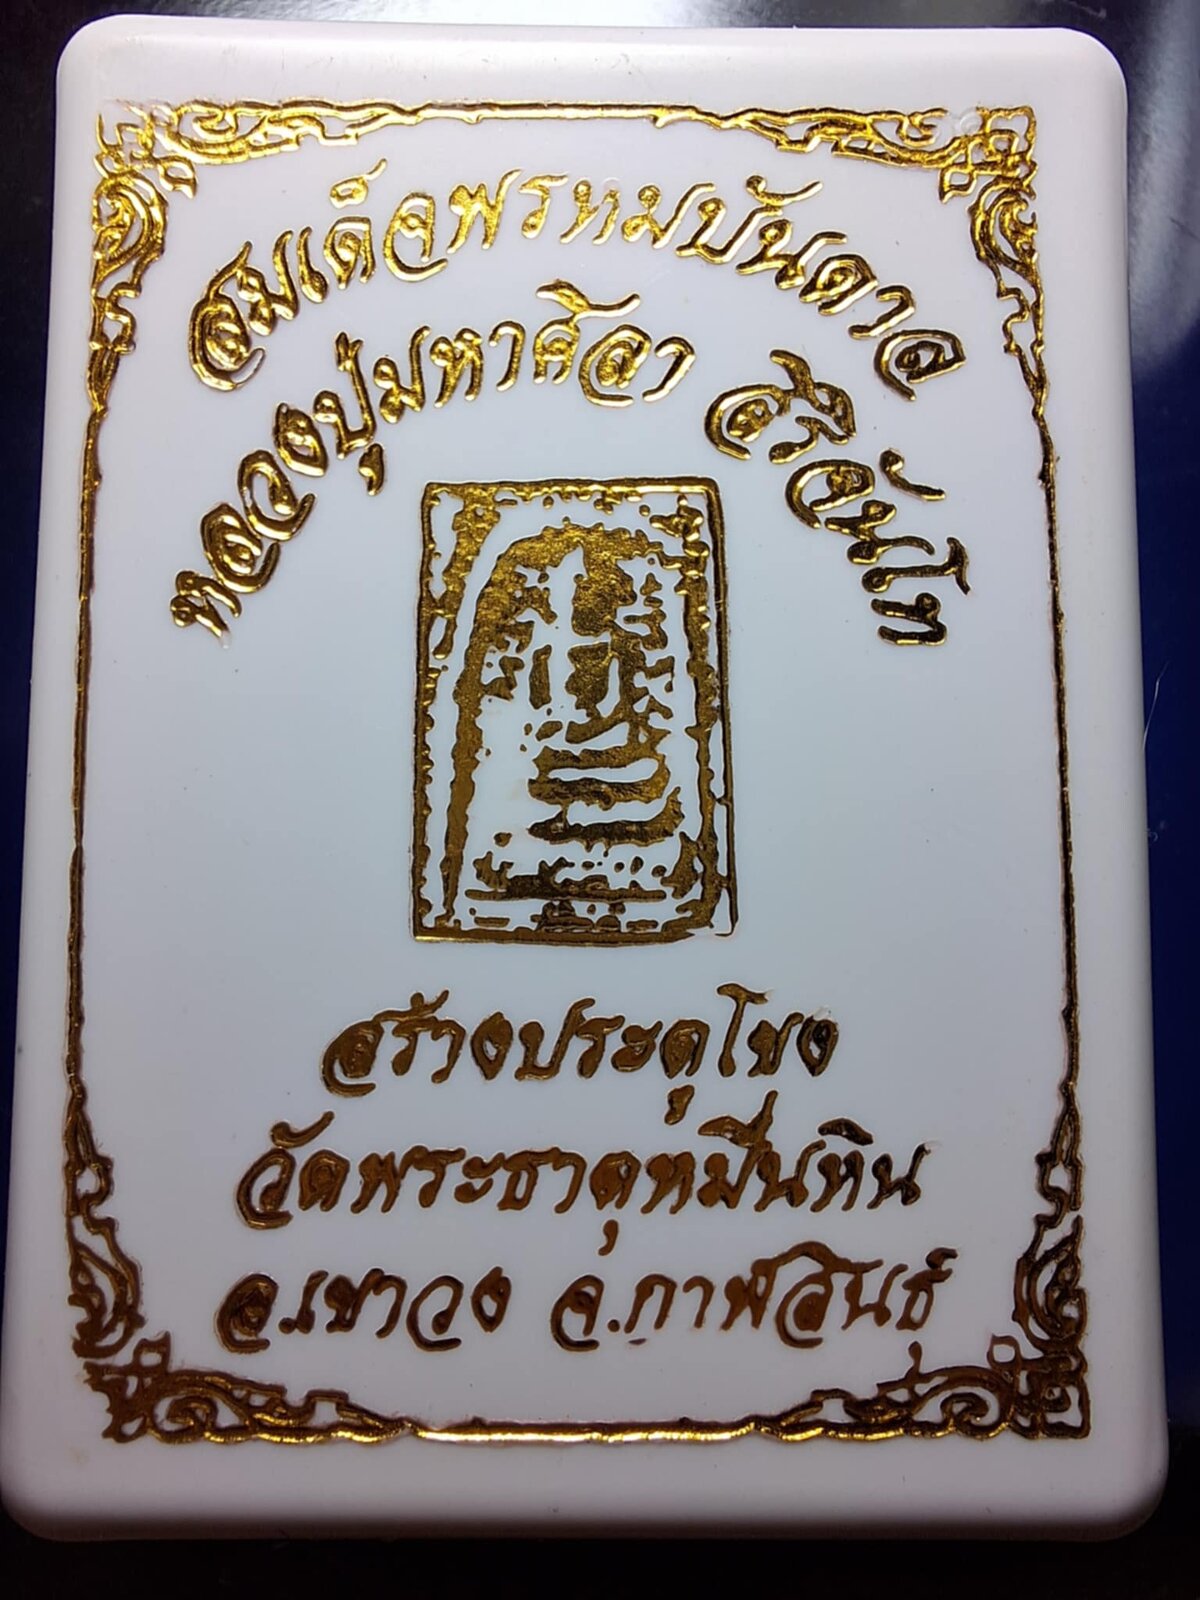 สมเด็จพรหมบันดาล
หลวงปู่มหาศิลา สิริจันโท
สร้างประตูโขง
วัดพระธาตุหมื่นหิน
อ.เขาวง จ.กาฬสินธุ์